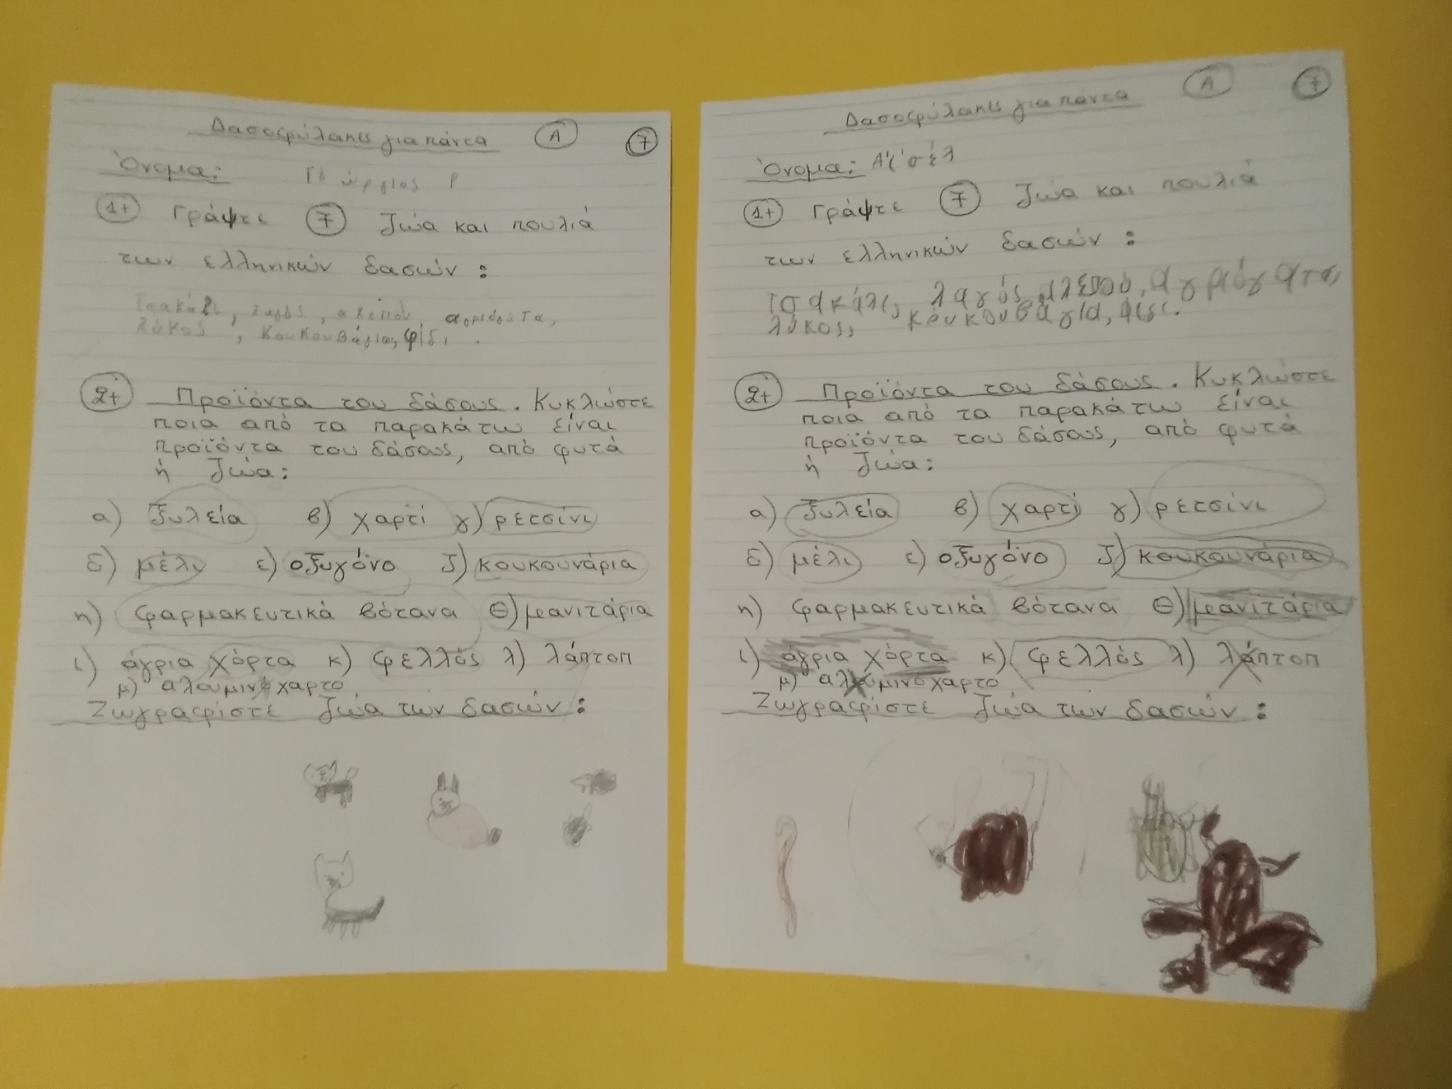 Δασοφύλακες για πάντα Α 7
Όνομα: Γιώργιος Ρ
1+ Γράψτε 7 ζώα και πουλιά
των ελληνικών δασών :
Τσακάλι, λαγός, αλεπού, αγριόγατα,
λύκος, κουκουβάγια, φίδι.
2+ Προϊόντα του δάσους. Κυκλώστε
ποια από τα παρακάτω είναι
προϊόντα του δάσους, από φυτά
ή ζώα:
α) ξυλεία β) χαρτί γ) ρετσίνι
δ) μέλι ε) οξυγόνο ζ) κουκουνάρια
η) φαρμακευτικά βότανα θ) μανιτάρια
ι) άγρια χόρτα κ) φελλός λ) λάπτοπ
μ) αλουμινόχαρτο
Ζωγραφίστε ζώα των δασών :
Δασοφύλακες για πάντα Α 7
Όνομα:
1+ Γράψτε 7 ζώα και πουλιά
των ελληνικών δασών :
Τσακάλι, λαγός, αλεπού, αγριόγατα,
λύκος, κουκουβάγια, φίδι.
2+ Προϊόντα του δάσους. Κυκλώστε
ποια από τα παρακάτω είναι
προϊόντα του δάσους, από φυτά
ή ζώα:
α) ξυλεία β) χαρτί γ) ρετσίνι
δ) μέλι ε) οξυγόνο ζ) κουκουνάρια
η) φαρμακευτικά βότανα θ) μανιτάρια
ι) άγρια χόρτα κ) φελλός λ) λάπτοπ
μ) αλουμινόχαρτο
Ζωγραφίστε ζώα των δασών :